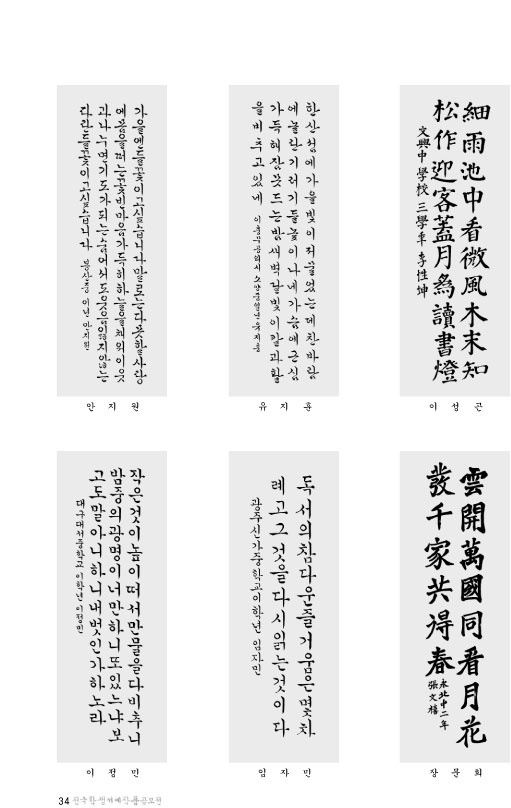 가을엔들꽃이고싶습니다말로는다못할사랑
에몸을떠는꽃빈마음가득히하늘을채워이웃
과나누면기도가되는숨어서도웃음잃지않는
파란들꽃이고싶습니다 봉산중 이년 안지원
안지원
한산섬에가을빛이저물었는데찬바람
에놀란기러기들높이나네가슴에근심
가득해잠못드는밤새벽달빛이칼과활
을비추고있네 이충무공의시 유지훈
유지훈
細雨池中看微風木末知
松作迎客蓋月爲讀書燈
文興中學校 三學年 李性坤
이성곤
작은것이높이떠서만물을다비추니
밤중의광명이너만하니또있느냐보
고도말아니하니내벗인가하노라
대구대서중학교 이학년 이정민
이정민
독서의참다운즐거움은몇차
례고그것을다시읽는것이다
광주신가중학교이학년 임자민
임자민
雲開萬國同看月花
發千家共得春
永北中二年
張文禧
장문희
34 전국학생서예작품공모전